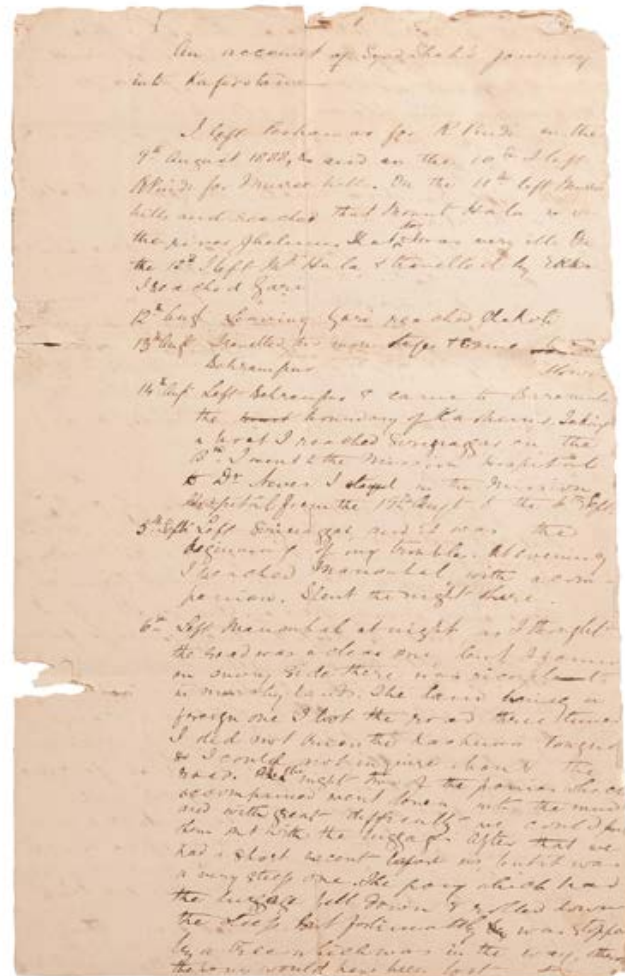 An account of Syed Shah's journey
into Kafirstan
I left Peshawar for R Pindi on the
9th August 1888, & and on the 10th I left
R Pindi for Murree hills. On the 11th left Murree
hills and reached that Mount Hala
the river Jhelum. that was very
the 12th I left Mt Hala, & travelled by Ekka
I reached Gari
12th Augt Leaving Gari reached Chakoti
13th Augt Travelled two more stages & came
Behrampur
14th Augt Left Behrampur & came to Baramula
the boundary of Kashmir. Taking
a boat I reached Srinaggar on the
I went to the Mission hospital
to Dr Neve. I stayed in the Mission
Hospital from the Augt to the 4th Sept.
5th Sept Left Srinaggar, and it was the
beginning of my trouble. At evening
I reached Manasbal, with a com-
panion. Spent the night there.
6th Left Manasbal at night as I thought
the road was a clear one, but I found
on every side there was
in marshy land. The land being a
foreign one I lost the road three times
I did not know the Kashmir tongue
& I could not inquire about the
road. At the night two of the ponies who
accompanied went down into the mud
and with great difficulty we could pull
them out with the luggage. After that we
had a short ascent before us, but it was
a very steep one. The pony which had
the luggage fell down & rolled down
the steep but fortunately was stopped
by a tree which was in the way,
the pony would have been